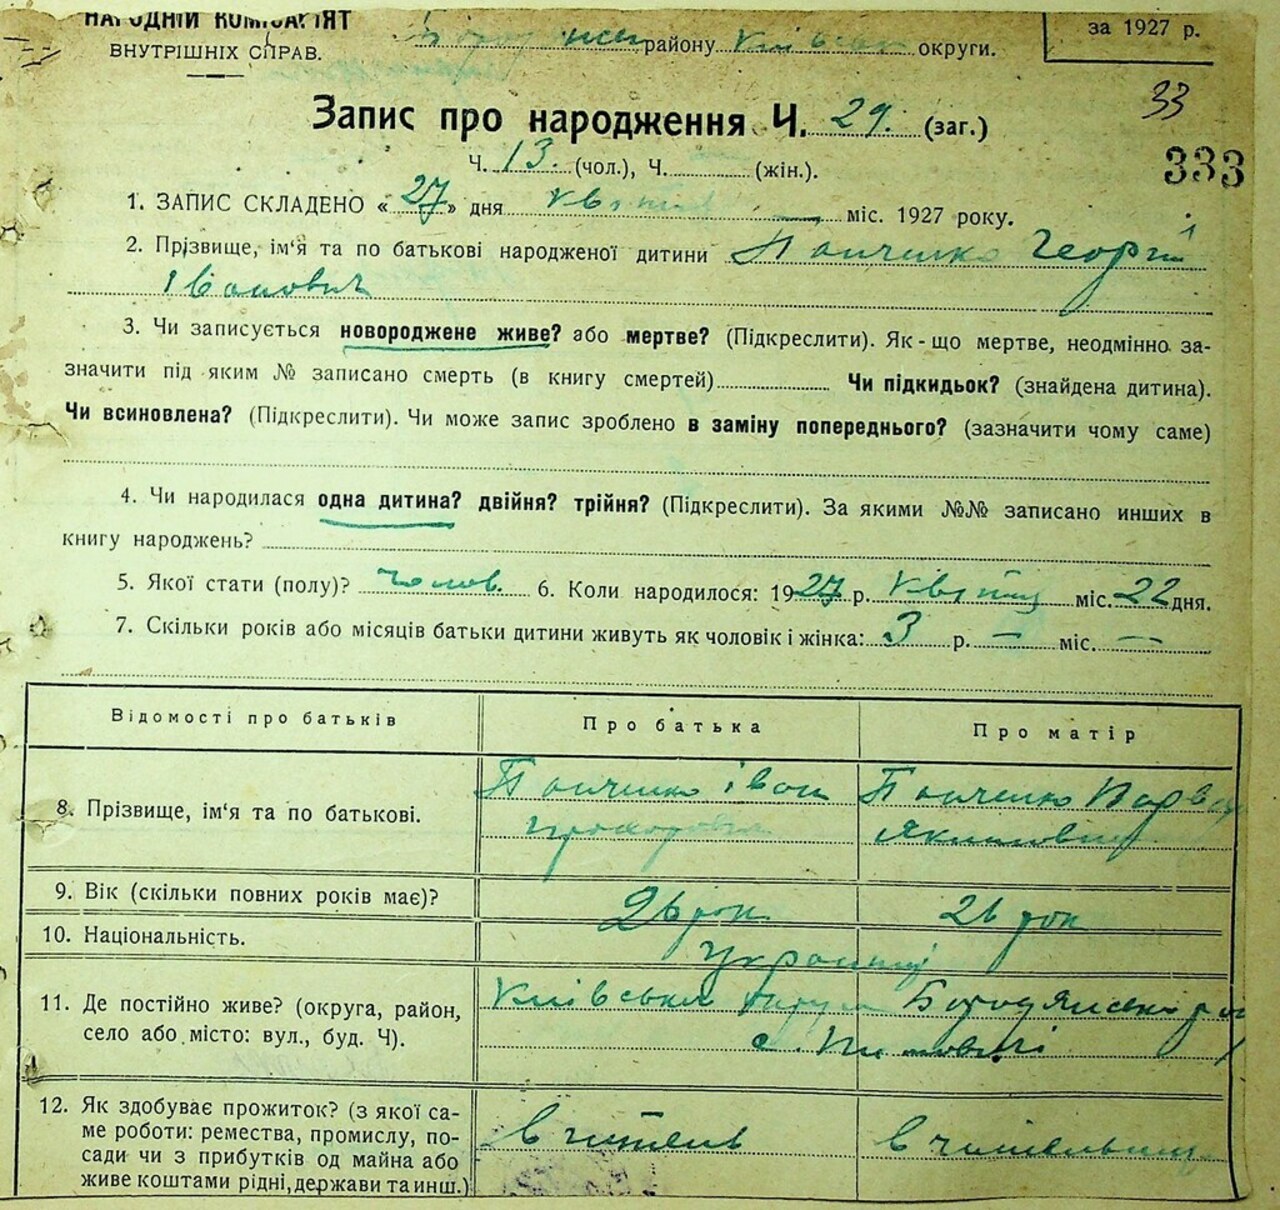 НАРОДНІЙ КОМІСАРІЯТ
ВНУТРІШНІХ СПРАВ.
району Київсько округи.
за 1927 р.
33
333
Запис про народження Ч. 29. (заг.)
Ч. 13. (чол.), Ч. (жін.).
1. ЗАПИС СКЛАДЕНО « 27 » дня квітня — міс. 1927 року.
2. Прізвище, ім‘я та по батькові народженої дитини Панченко Георгій
Іванович
3. Чи записується новороджене живе? або мертве? (Підкреслити). Як-що мертве, неодмінно за-
значити під яким № записано смерть (в книгу смертей) Чи підкидьок? (знайдена дитина).
Чи всиновлена? (Підкреслити). Чи може запис зроблено в заміну попереднього? (зазначити чому саме)
4. Чи народилася одна дитина? двійня? трійня? (Підкреслити). За якими №№ записано инших в
книгу народжень?
5. Якої стати (полу)? чолов. 6. Коли народилося: 1927 р. квітня міс. 22 дня.
7. Скільки років або місяців батьки дитини живуть як чоловік і жінка: 3 р. — міс. —
Відомості про батьків Про батька Про матір
8. Прізвище, ім‘я та по батькові. Панченко Іван Панченко Варвара
Прохорович Якимовна
9. Вік (скільки повних років має)? 26 рок. 26 рок
10. Національність. Українці
11. Де постійно живе? (округа, район, Київська округа Бородянський рай
село або місто: вул., буд. Ч). с.
12. Як здобуває прожиток? (з якої са- вчитель вчителька
ме роботи: ремества, промислу, по-
сади чи з прибутків од майна або
живе коштами рідні, держави та инш.)